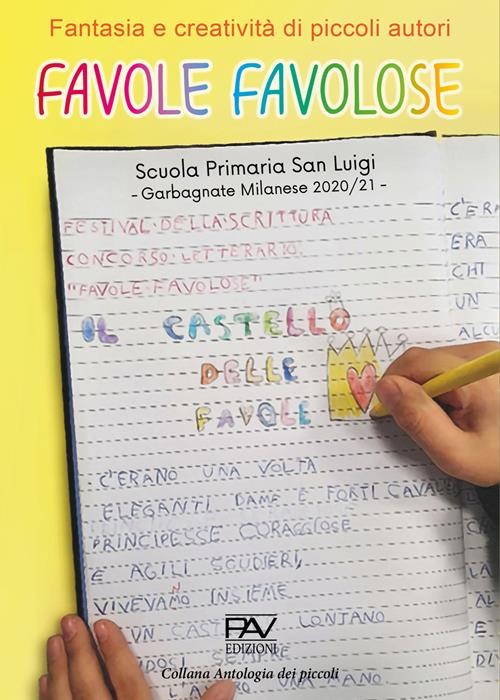 Fantasia e creatività di piccoli autori
FAVOLE FAVOLOSE
Scuola Primaria San Luigi
- Garbagnate Milanese 2020/21 -
FESTIVAL DELLA SCRITTURA
CONCORSO LETTERARIO
"FAVOLE FAVOLOSE"
IL CASTELLO
DELLE
FAVOLE
C'ERANO UNA VOLTA
ELEGANTI DAME E FORTI CAVALE
PRINCIPESSE CORAGGIOSE
E AGILI SCUDIERI,
VIVEVANO INSIEME
UN CAST LONTANO
SEMPRE
UNA MANO
C'ERA
ERA
CHI
UN
ALCU
LA
AL
DI
PAV
EDIZIONI
Collana Antologia dei piccoli